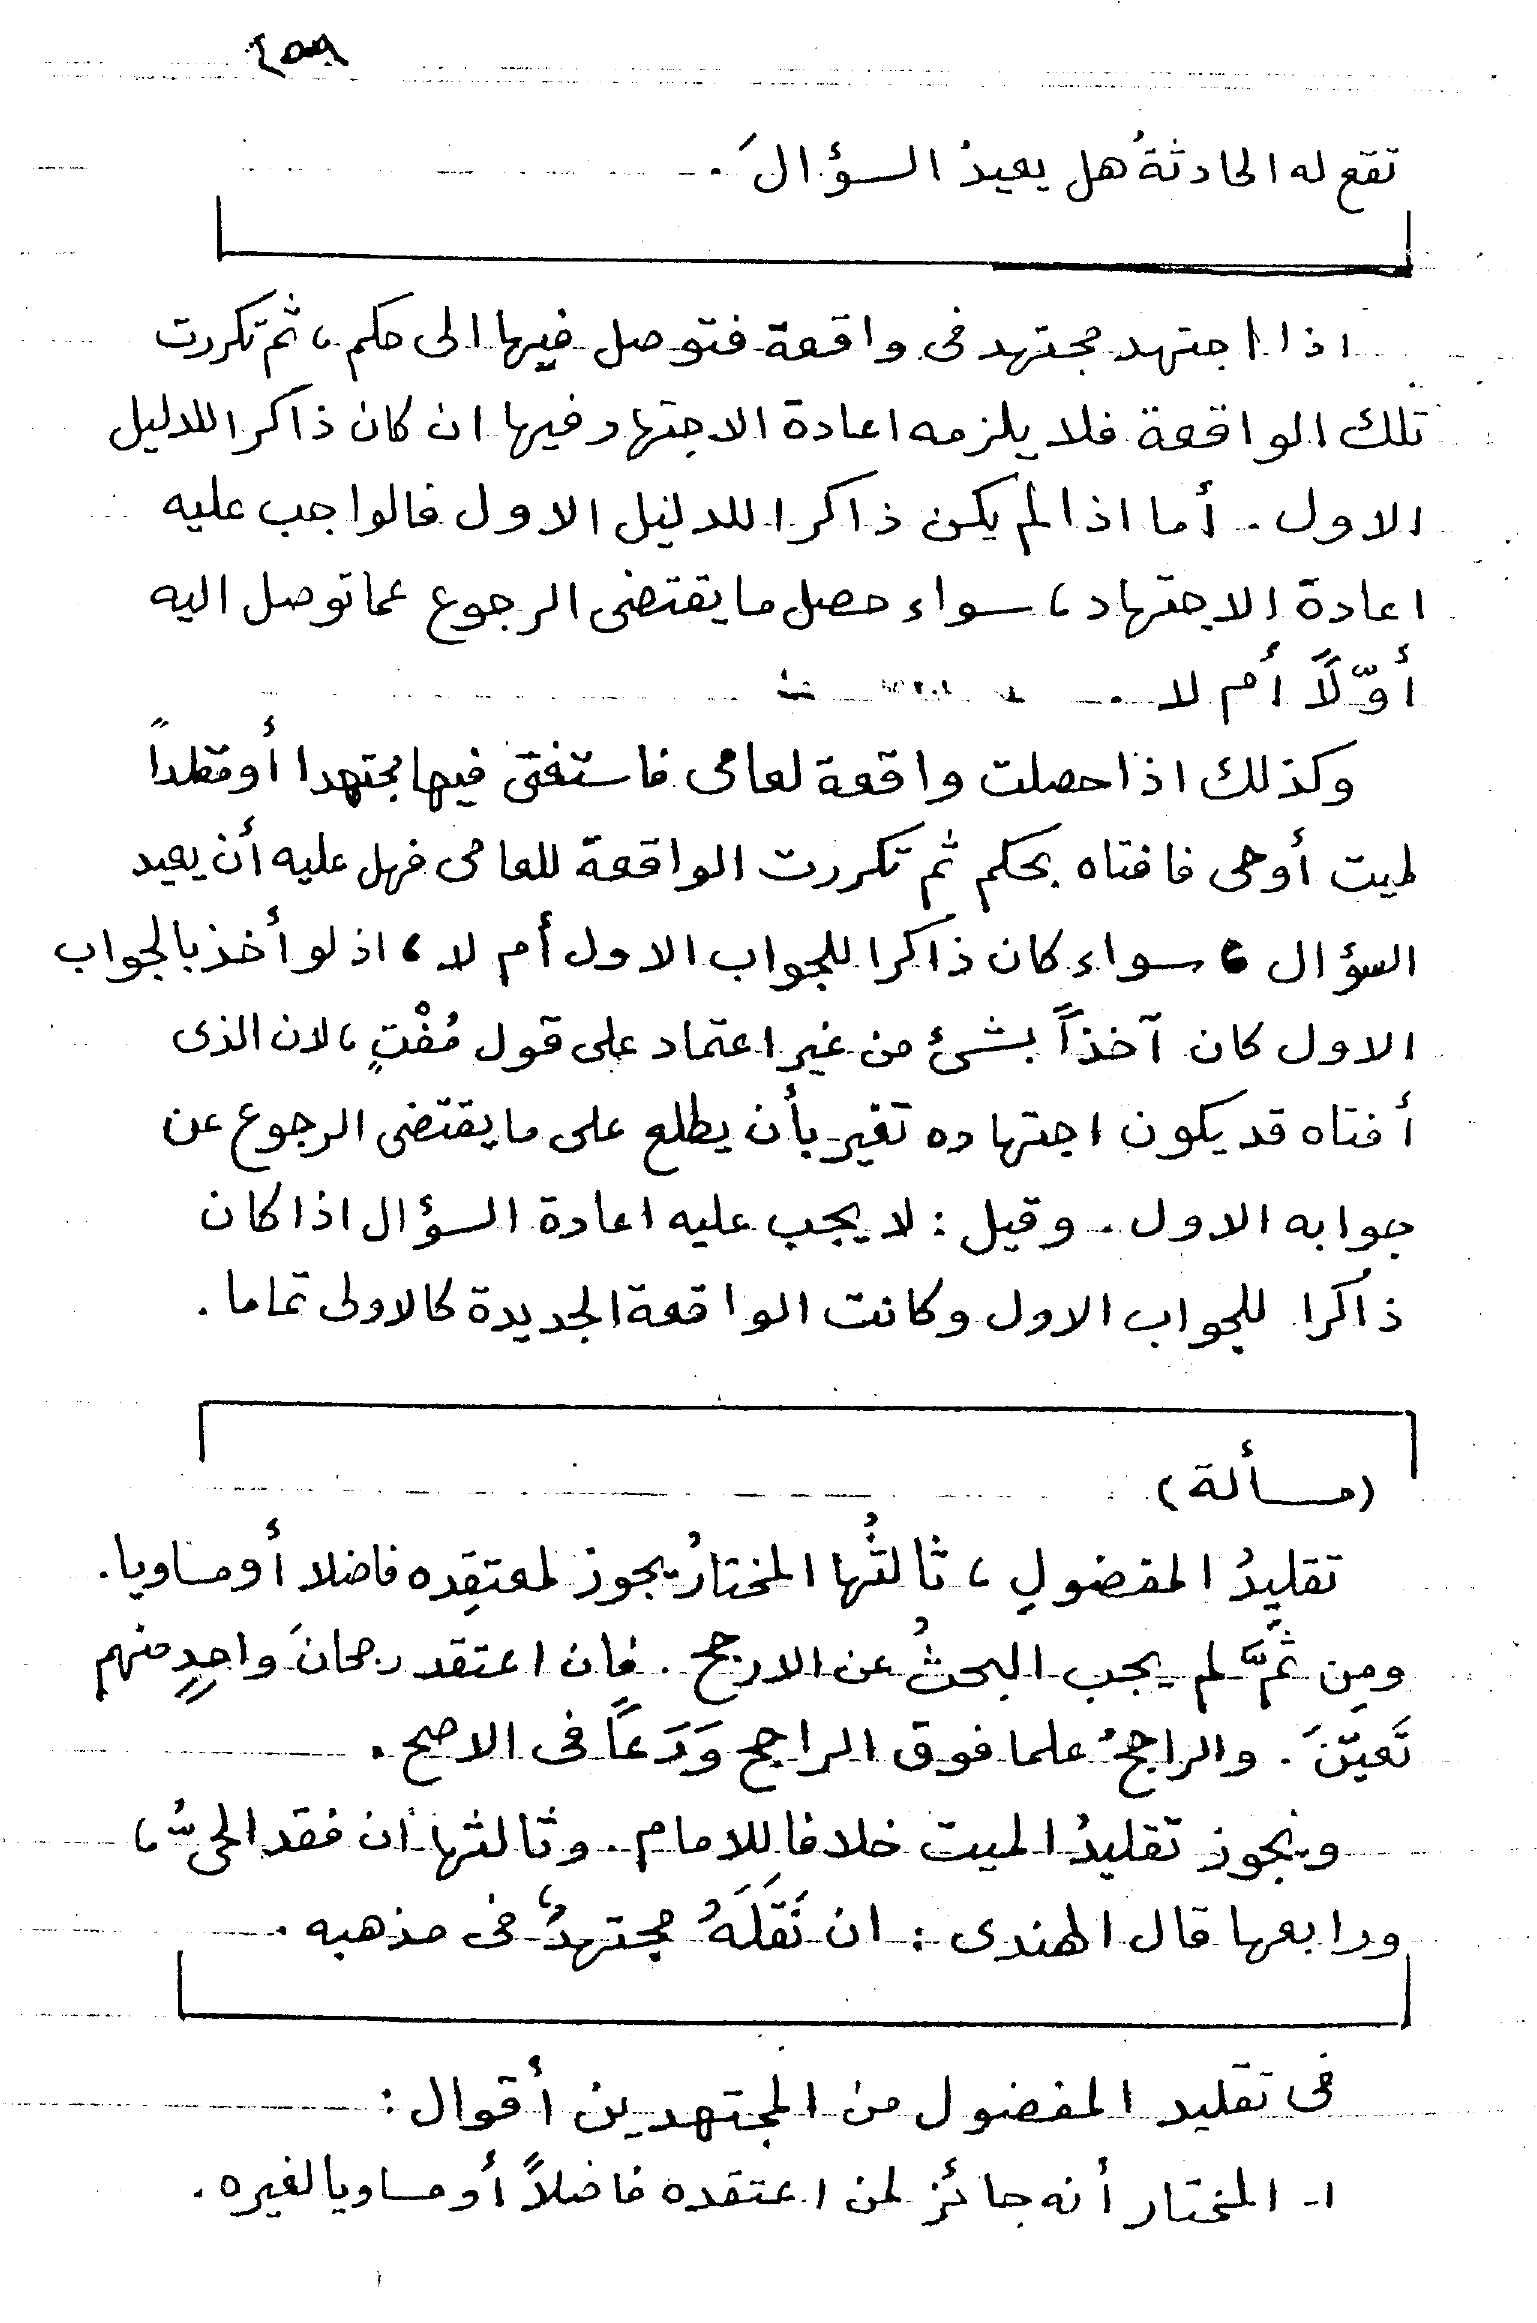 ٢٥٩
تقع له الحادثةُ هل يعيدُ السؤالَ .
اذا اجتهد مجتهد فى واقعة فتوصل فيها الى حكم ، ثم تكررت
تلك الواقعة فلا يلزمه اعادة الاجتهاد فيها ان كان ذاكرا للدليل
الاول . أما اذا لم يكن ذاكرا للدليل الاول فالواجب عليه
اعادة الاجتهاد ، سواء حصل ما يقتضى الرجوع عما توصل اليه
أوّلاً أم لا .
وكذلك اذا حصلت واقعة لعامى فاستفتى فيها مجتهدا أو مقلداً
لميت أو حى فافتاه بحكم ثم تكررت الواقعة للعامى فهل عليه أن يعيد
السؤال ، سواء كان ذاكرا للجواب الاول أم لا ، اذ لو أخذ بالجواب
الاول كان آخذاً بشئ من غير اعتماد على قول مُفْتٍ ، لان الذى
أفتاه قد يكون اجتهاده تغير بأن يطلع على ما يقتضى الرجوع عن
جوابه الاول . وقيل : لا يجب عليه اعادة السؤال اذا كان
ذاكرا للجواب الاول وكانت الواقعة الجديدة كالاولى تماما .
(مسألة)
تقليدُ المفضولِ ، ثالثُها المختارُ يجوز لمعتقِده فاضلا أو مساويا .
ومِن ثَمَّ لم يجب البحثُ عن الارجح . فان اعتقد رجحانَ واحدٍ منهم
تَعيّنَ . والراجحُ علما فوق الراجح وَرَعاً فى الاصح .
ويجوز تقليدُ الميت خلافا للامام . وثالثها ان فقد الحىُّ ،
ورابعها قال الهندى : ان نَقَلَهُ مجتهدٌ فى مذهبه .
فى تقليد المفضول من المجتهدين أقوال :
١ـ المختار أنه جائز لمن اعتقده فاضلاً أو مساويا لغيره .